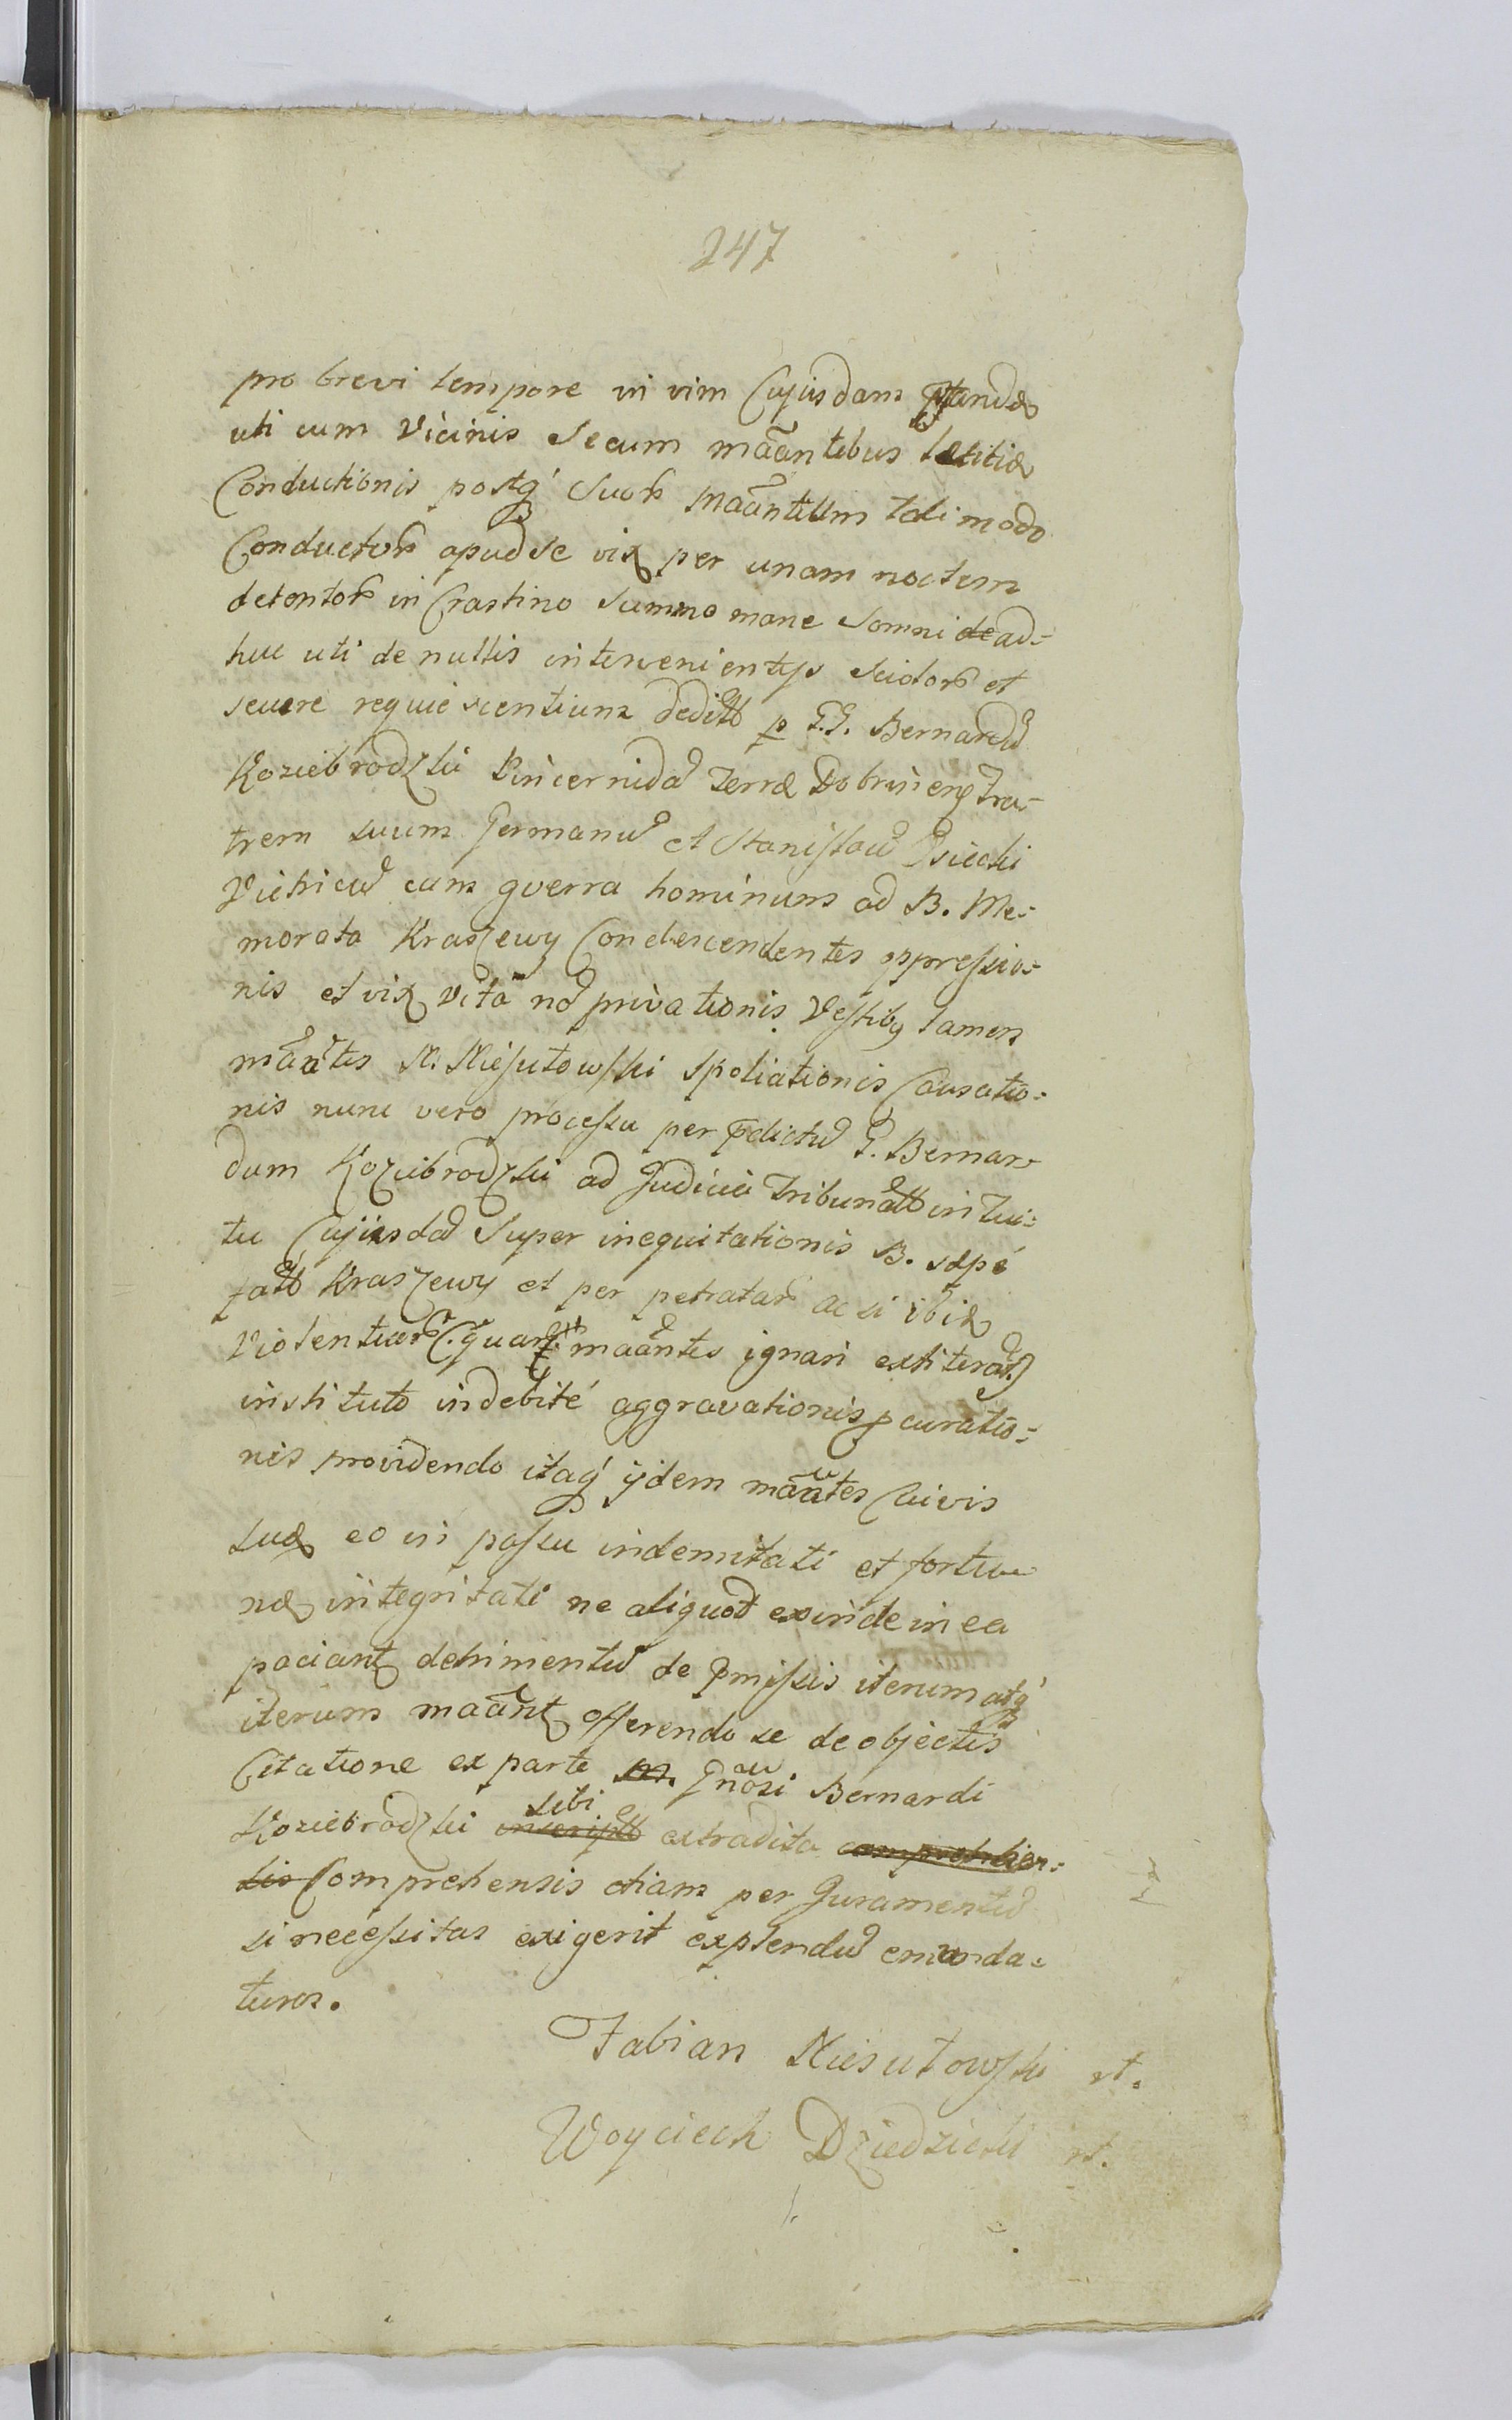 247
pro brevi tempore in vim Cujusdam pstandæ
uti cum Vicinis secum mãantibus lætitiæ
Conductionis postq́ suorũ mãantium tali modo
Conductorũ apud se vix per unam noctem
detentorũ in Crastino summo mane somni de ad-
huc uti de nullis intervenientijs scidorũ et
secure requiescentium dedittõ p G.G. Bernardũ
Koziebrodzki Pincernidã Terræ Dobrinenẽ fra-
trem suum Germanũ et Stanisłaũ Psiecki
Vitricũ cum guerra hominum ad B. Me-
morata Kraszewy Condescendentes oppressio-
nis et vix Vitã nõ privationis Vestibq tamen
mãantis N. Niesułowski Spoliationis Causatio-
nis nunc vero processu per pdictũ G. Bernar-
dum Koziebrodzki ad Judicia Tribunãttõ intui-
tu Cujusdã Super inequitationis B. sæpe
fattõ Kraszewy et per petratarũ ac si ibidẽ
Violentiarũ (quarũ mãantes ignari extiterãt)
instituto indebité aggravationis pcuratio-
nis providendo itaq́ ijdem mãantes Cuivis
suæ eo in passu indemnitati et fortu-
næ integritati ne aliquod exinde in ea
paciant detrimentũ de pmissis iterum atq́
iterum mãant offerendo se de objectis
Citatione ex parte m. Gnosi Bernardi
Koziebrodzki inscripttõ sibi extradita comprehen-
sis Comprehensis etiam per Juramentũ
si necessitas exigerit explendũ emunda-
turos.
Fabian Niesułowski
Woyciech Dziedzicki